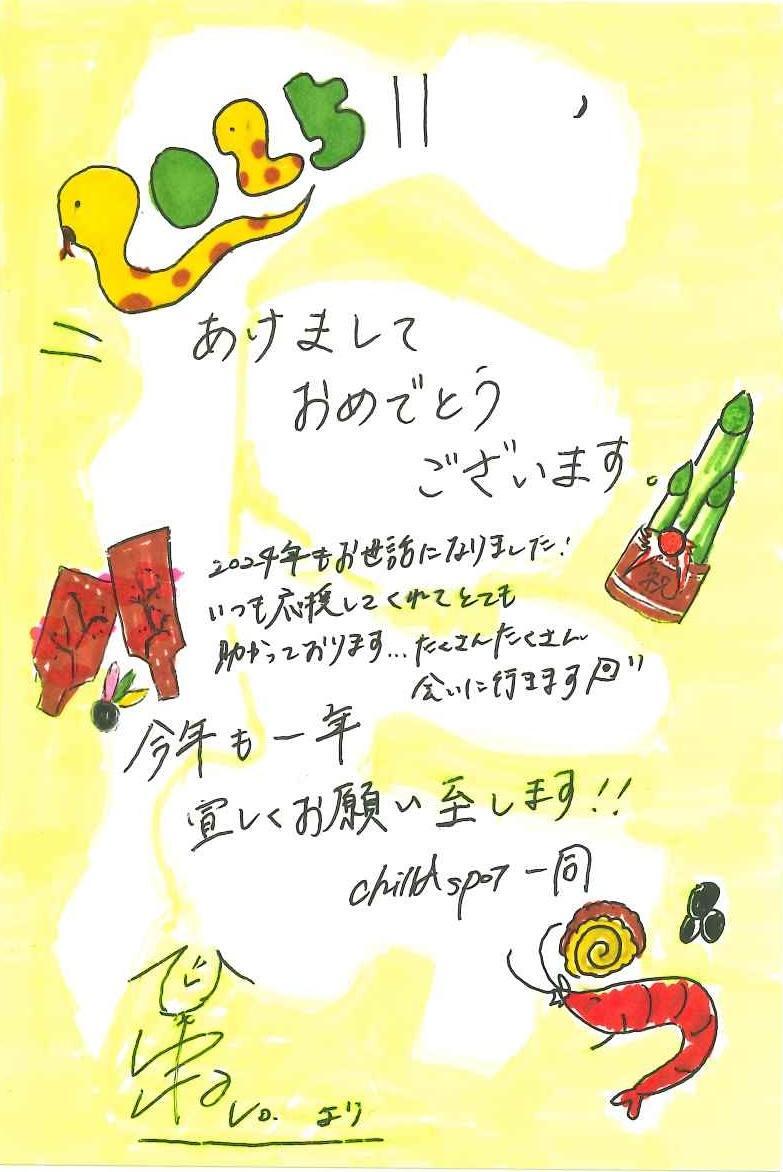 2025
あけまして
おめでとう
ございます。
祝
2024年もお世話になりました！
いつも応援してくれてとても
助かっております...たくさんたくさん
会いに行きます
今年も一年
宜しくお願い至します!!
chilldspot 一同
Vo. より